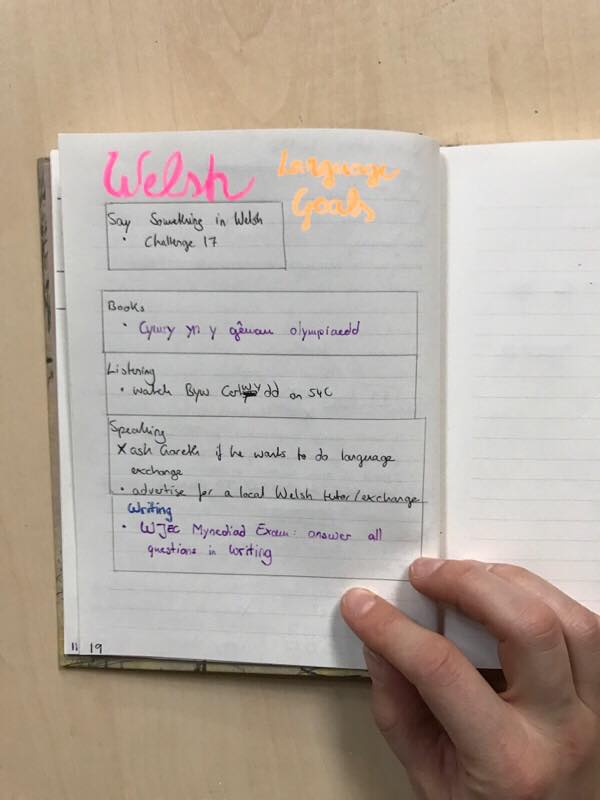 Welsh Language
Goals
Say Something in Welsh
• Challenge 17
Books
• Cymry yn y gêmau olympiaedd
Listening
• watch Byw on S4C
Speaking
X ask Gareth if he wants to do language
exchange
• advertise for a local Welsh tutor/exchange
Writing
• WJEC Mynediad Exam: answer all
questions in writing
11 19